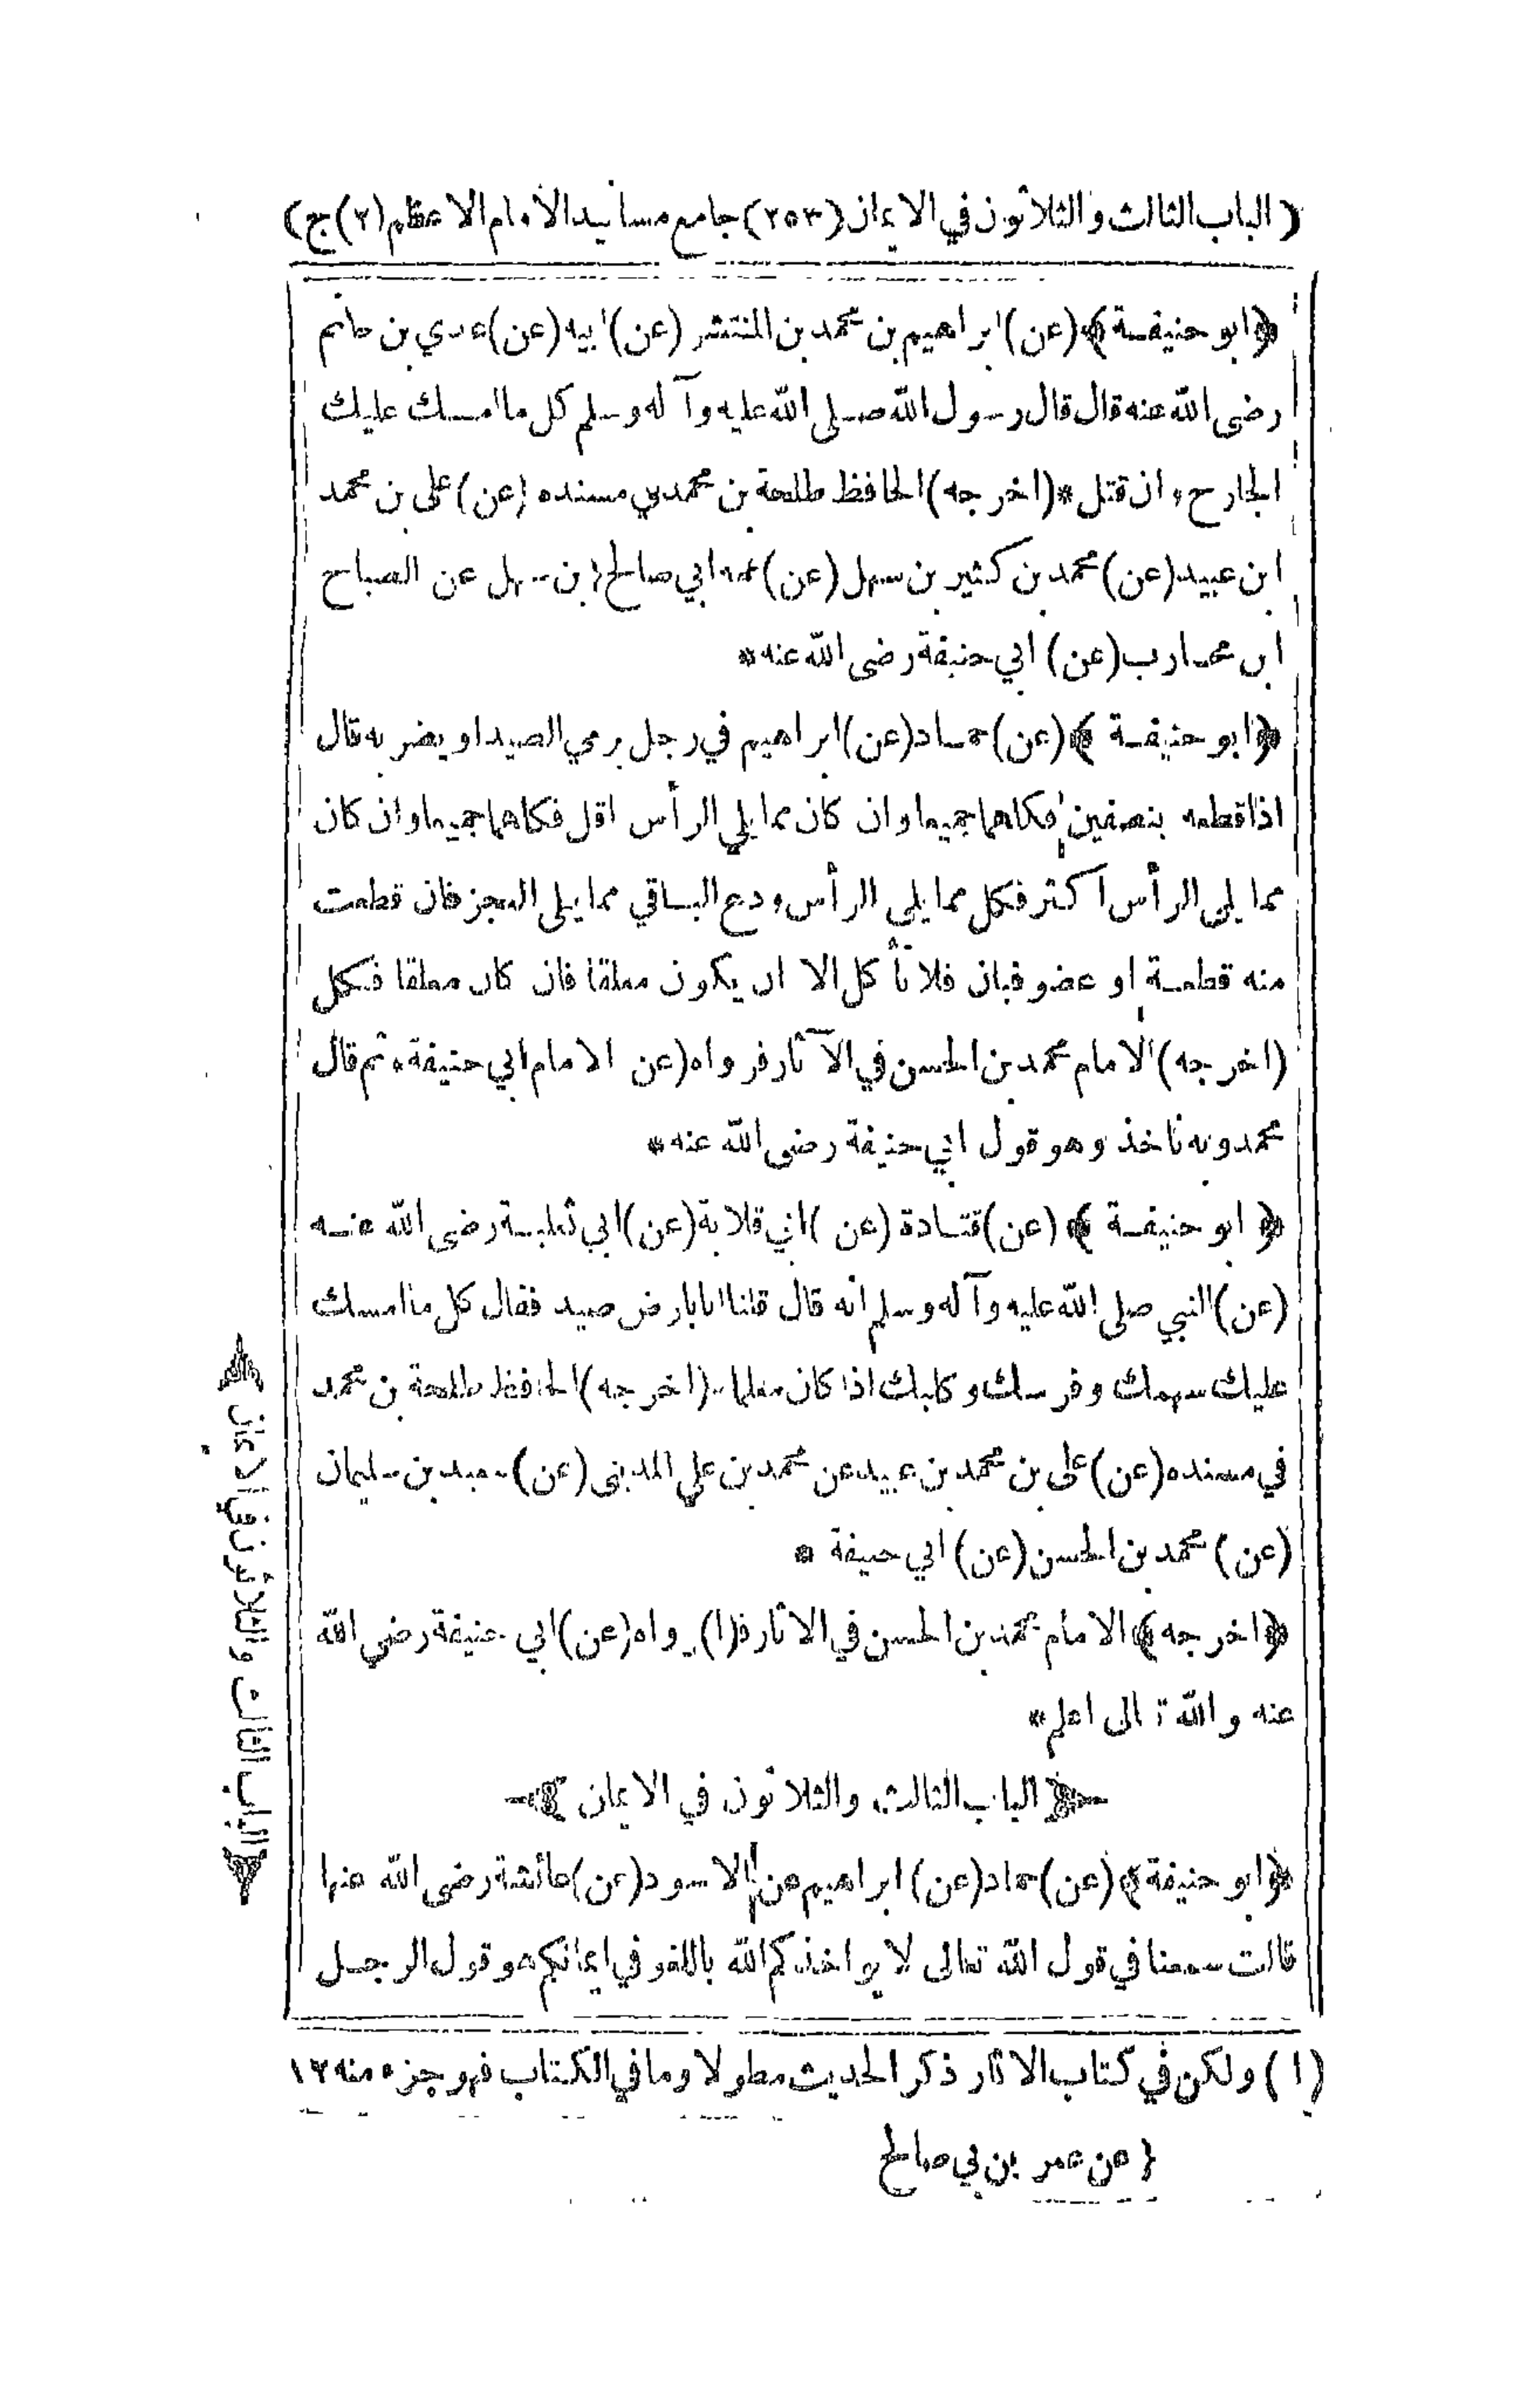 ( الباب الثالث والثلاثون في الايمان (٢٥٣) جامع مسانيد الامام الاعظم (٢) ج )
﴿ ابو حنيفة ﴾ (عن) ابراهيم بن محمد بن المنتشر (عن) ابيه (عن) عدي بن حاتم
رضى الله عنه قال قال رسول الله صلى الله عليه وآله وسلم كل ما امسك عليك
الجارح وان قتل * (اخرجه) الحافظ طلحة بن محمد في مسنده (عن) على بن محمد
ابن عبيد (عن) محمد بن كثير بن سهل (عن) ابي صالح { بن سهل عن الصباح
ابن محارب (عن) ابي حنيفة رضى الله عنه *
﴿ ابو حنيفة ﴾ (عن) حماد (عن) ابراهيم في رجل يرمي الصيد او يضربه قال
اذا قطعه بنصفين فكلهما جميعا وان كان مما يلي الرأس اقل فكلهما جميعا وان كان
مما يلى الرأس اكثر فكل مما يلى الرأس ودع الباقي مما يلى العجز فان قطعت
منه قطعة او عضو فبان فلا تأكل الا ان يكون معلقا فان كان معلقا فكل
(اخرجه) الامام محمد بن الحسن في الآثار فرواه (عن الامام ابي حنيفة ، ثم قال
محمد وبه ناخذ وهو قول ابي حنيفة رضى الله عنه *
﴿ ابو حنيفة ﴾ (عن) قتادة (عن) ابي قلابة (عن) ابي ثعلبة رضى الله عنه
(عن) النبي صلى الله عليه وآله وسلم انه قال قلنا انا بارض صيد فقال كل ما امسك
عليك سهمك وفرسك وكلبك اذا كان معلما (اخرجه) الحافظ طلحة بن محمد
في مسنده (عن) على بن محمد بن عبيد عن محمد بن علي المدينى (عن) سعيد بن سليمان
(عن) محمد بن الحسن (عن) ابي حنيفة *
﴿ اخرجه ﴾ الامام محمد بن الحسن في الاثار ف(١) رواه (عن) ابي حنيفة رضي الله
عنه والله تعالى اعلم *
الباب الثالث والثلاثون في الايمان
﴿ ابو حنيفة ﴾ (عن) حماد (عن) ابراهيم عن الاسود (عن) عائشة رضى الله عنها
قالت سمعنا في قول الله تعالى لا يواخذكم الله باللغو في ايمانكم هو قول الرجل
(١) ولكن في كتاب الاثار ذكر الحديث مطولا وما في الكتاب فهو جزء منه ١٢
{ عن عمر بن بي صالح
الباب الثالث والثلاثون في الايمان